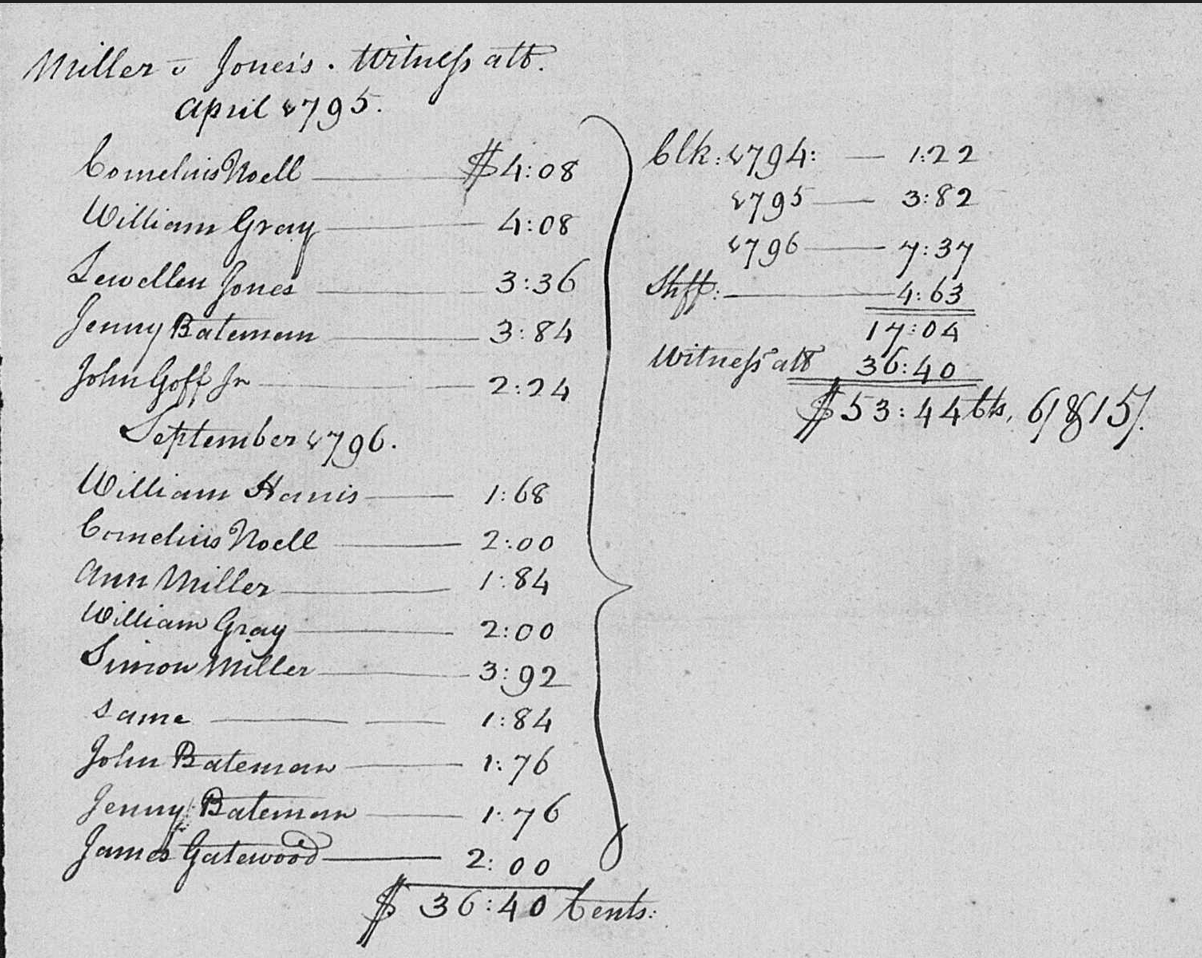 Miller v Jones's. Witness att.
April 1795.
Cornelius Noell $4:08
William Gray 4:08
Lewellen Jones 3:36
Jenny Bateman 3:84
John Goff Jr 2:24
September 1796.
William Harris 1:68
Cornelius Noell 2:00
Ann Miller 1:84
William Gray 2:00
Simon Miller 3:92
same 1:84
John Bateman 1:76
Jenny Bateman 1:76
James Gatewood 2:00
$ 36:40 Cents:
Clk: 1794: 1:22
1795 3:82
1796 7:37
Shff: 4:63
17:04
Witness att 36:40
$53:44 Cts.